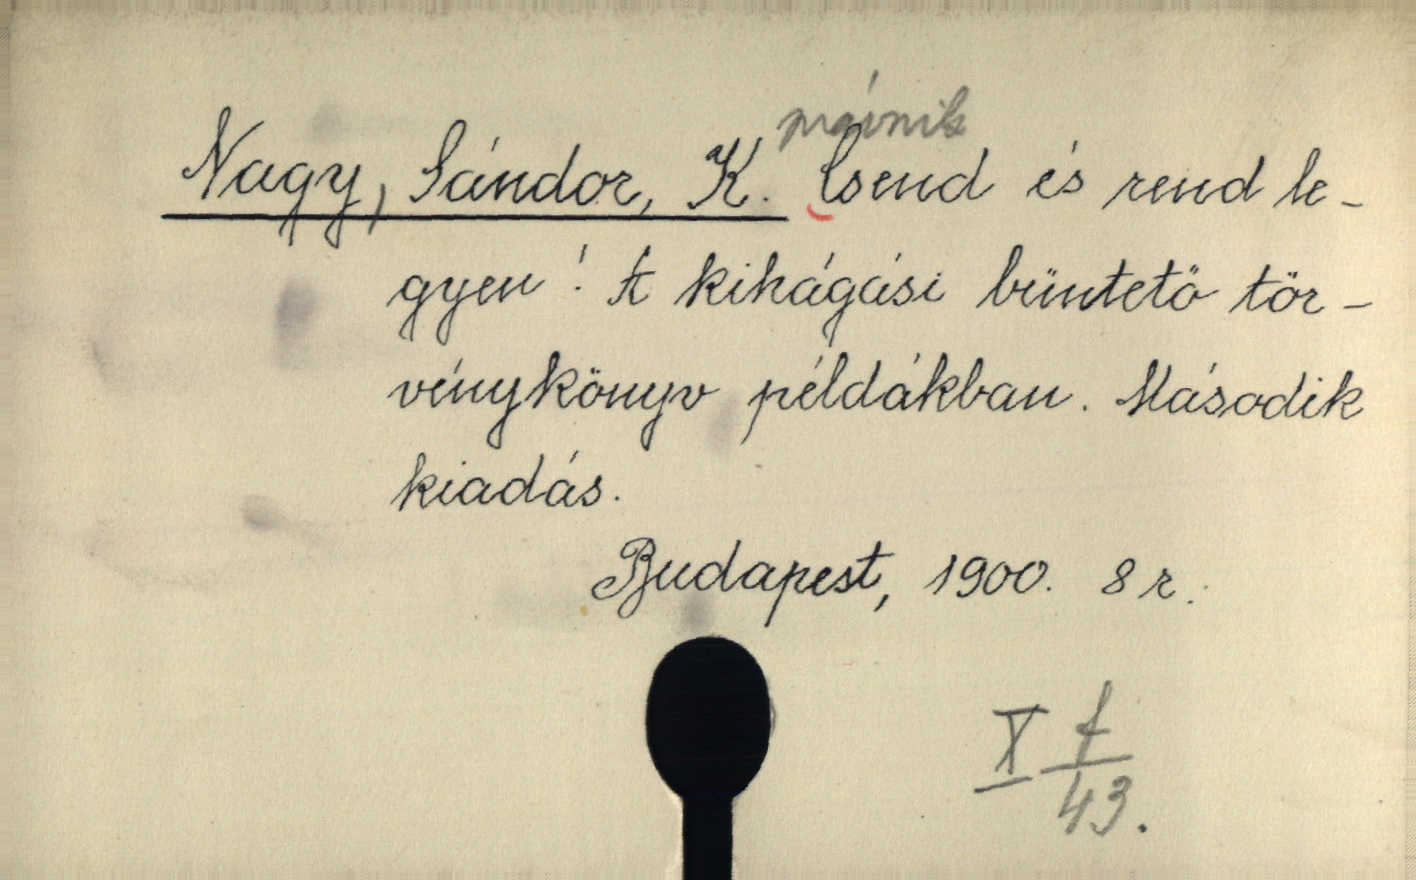 právnik
Nagy, Sándor, K. Csend és rend le-
gyen! A kihágási büntető tör-
vénykönyv példákban. Második
kiadás.
Budapest, 1900. 8 r.
X f
43.